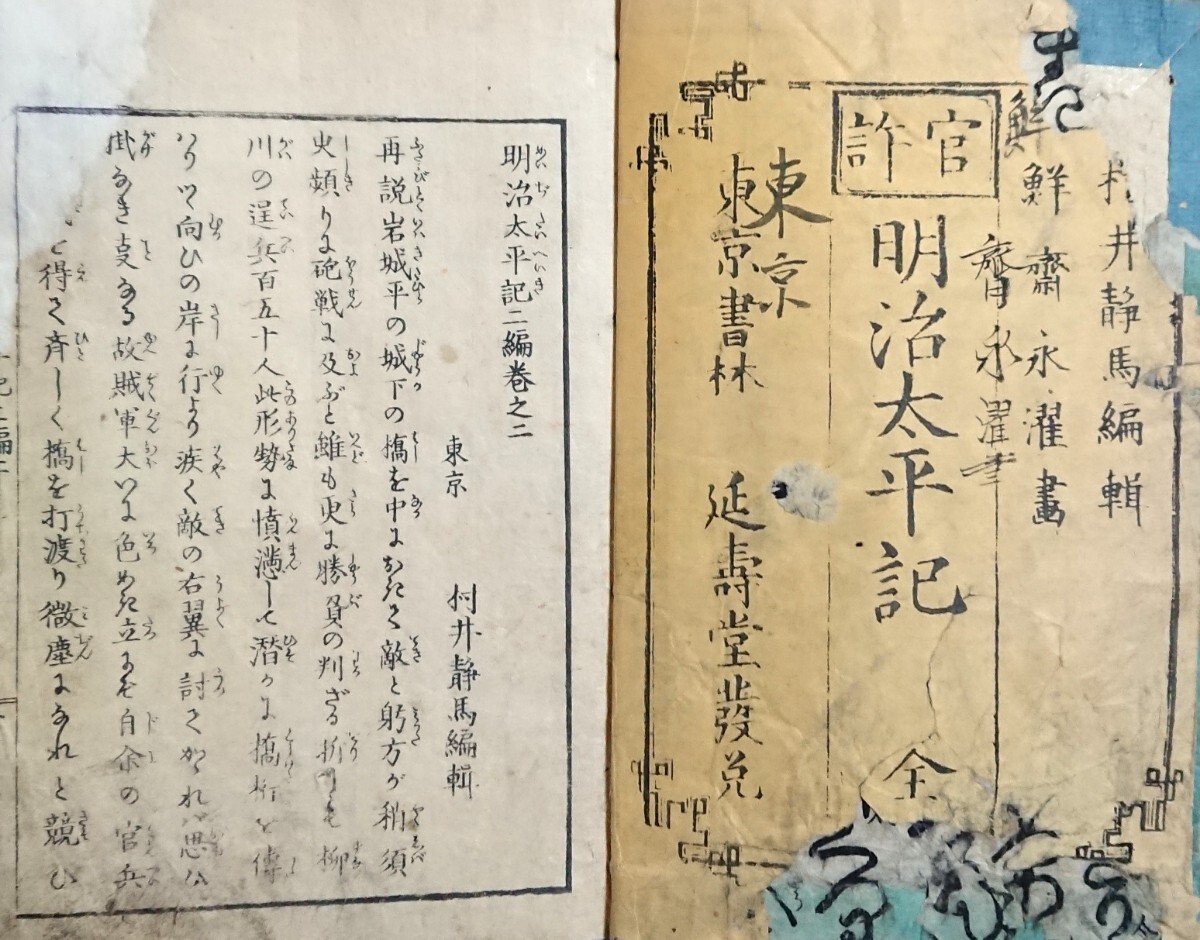 官許
村井靜馬編輯
鮮齋永濯畫
齋永濯
明治太平記 全
東京
東京書林 延壽堂發兌
明治太平記二編巻之二
東京 村井静馬編輯
再説岩城平の城下の橋を中におきて敵と躬方が稍須
火頻りに砲戦に及ぶと雖も更に勝負の判ざる折しも柳
川の逞兵百五十人此形勢に憤懣して潜かに橋桁を傳
ひつゝ向ひの岸に行より疾く敵の右翼に討てかゝれバ思ひ
掛なき支なる故賊軍大いに色めき立にぞ自余の官兵
と得て斉しく橋を打渡り微塵になれと競ひ